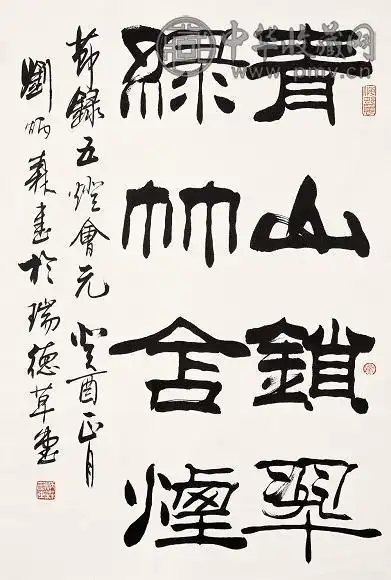 青山鎖翠
綠竹含煙
節錄五燈會元 癸酉正月
劉炳森書於瑞德草堂
中华收藏网
www.pmv.cn